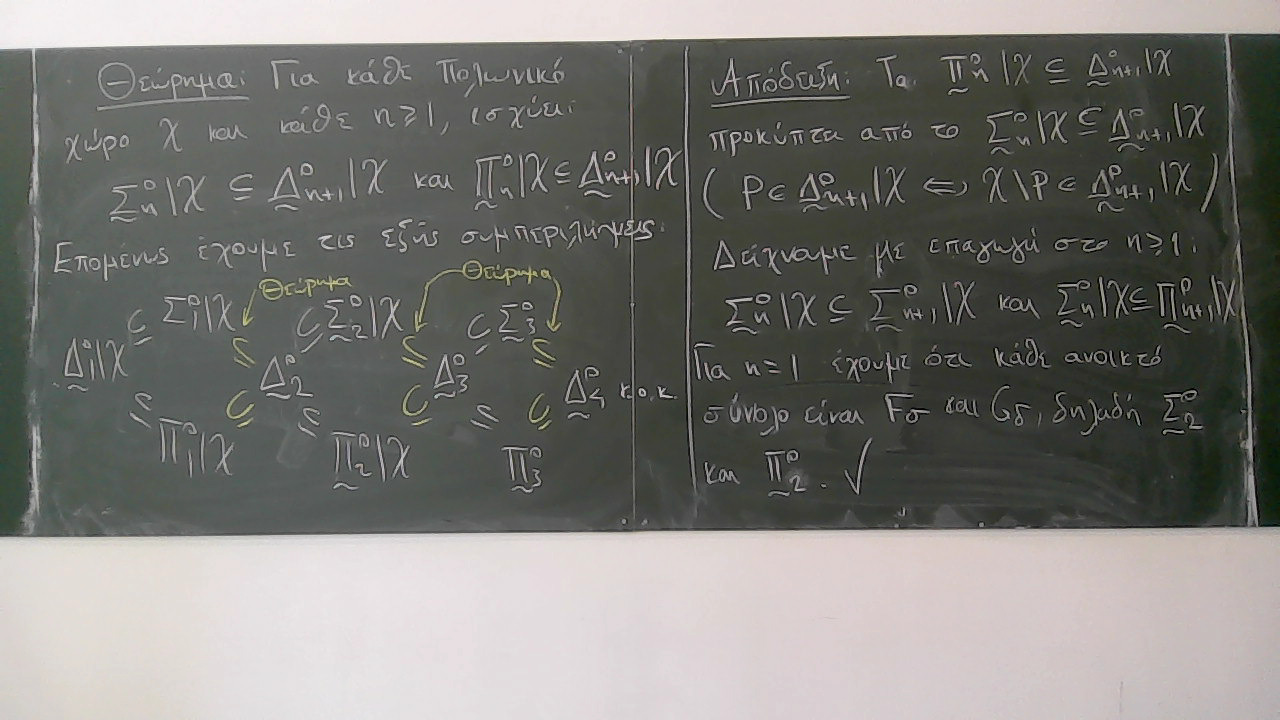 Θεώρημα: Για κάθε Πολωνικό
χώρο X και κάθε n ≥ 1, ισχύει:
Σ̰⁰ₙ|X ⊆ Δ̰⁰ₙ₊₁|X και Π̰⁰ₙ|X ⊆ Δ̰⁰ₙ₊₁|X
Επομένως έχουμε τις εξής συμπεριλήψεις:
Θεώρημα Θεώρημα
Σ⁰₁|X Σ̰⁰₂|X Σ̰⁰₃
⊆ ⊆ ⊆ ⊆ ⊆ ⊆
Δ̰⁰₁|X Δ̰⁰₂ Δ̰⁰₃ Δ̰⁰₄ κ.ο.κ.
⊆ ⊆ ⊆ ⊆ ⊆ ⊆
Π⁰₁|X Π̰⁰₂|X Π̰⁰₃
Απόδειξη: Το Π̰⁰ₙ|X ⊆ Δ̰⁰ₙ₊₁|X
προκύπτει από το Σ̰⁰ₙ|X ⊆ Δ̰⁰ₙ₊₁|X
(P ∈ Δ̰⁰ₙ₊₁|X ⇔ X\P ∈ Δ̰⁰ₙ₊₁|X)
Δείχνουμε με επαγωγή στο n ≥ 1:
Σ̰⁰ₙ|X ⊆ Σ̰⁰ₙ₊₁|X και Σ̰⁰ₙ|X ⊆ Π̰⁰ₙ₊₁|X
Για n = 1 έχουμε ότι κάθε ανοικτό
σύνολο είναι Fσ και Gδ, δηλαδή Σ̰⁰₂
και Π̰⁰₂. ✓